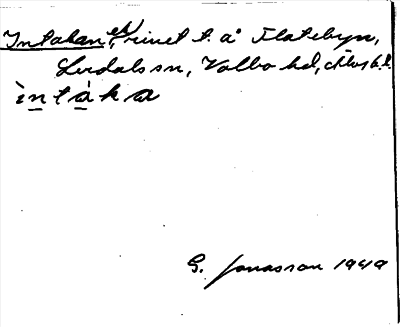 Intakan, rinet t. å Flatebyn,
Lerdals sn, Valbo hd, Älvsb.l.
ìntàka
G. Jonasson 1949